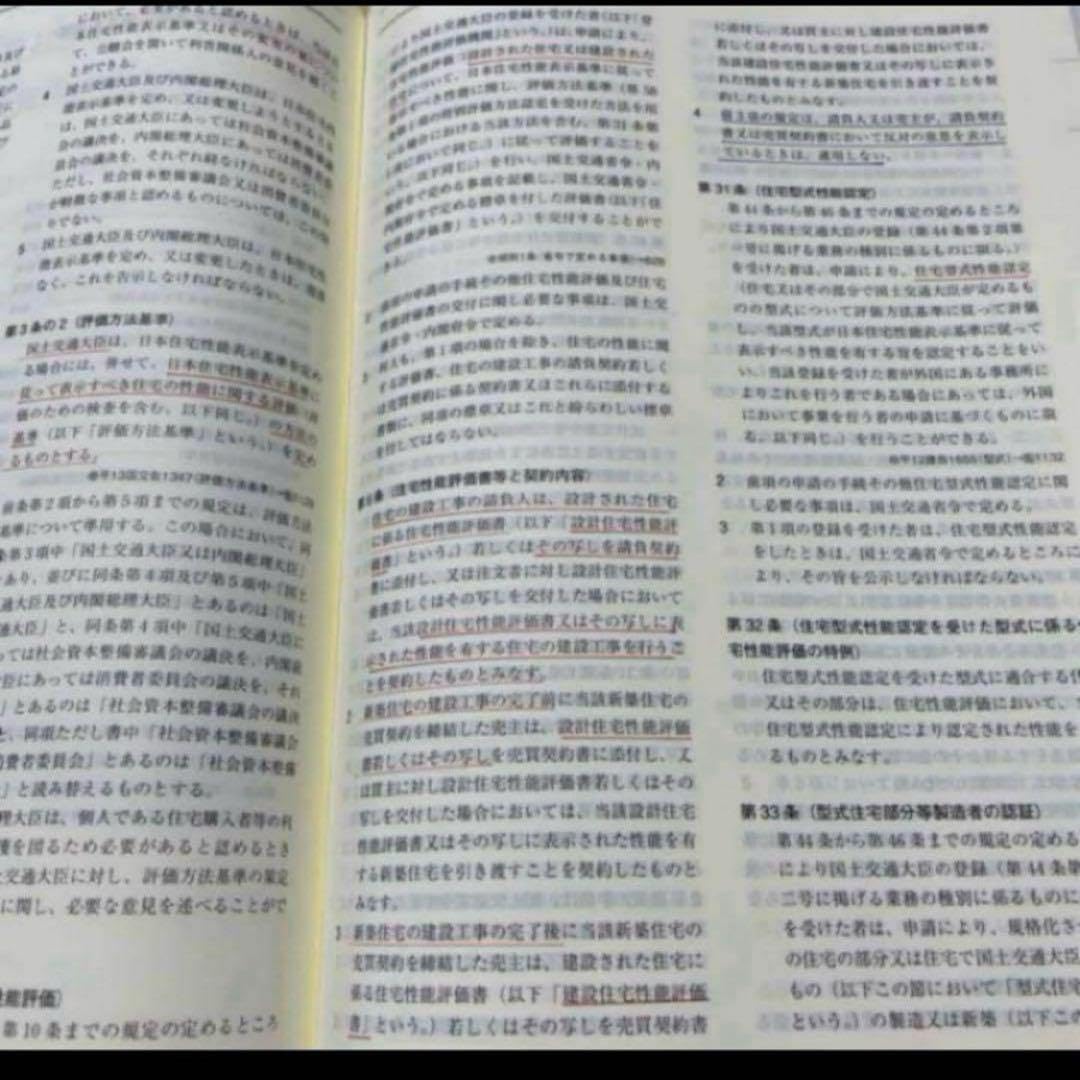 において、必要があると認めるときは、
本住宅性能表示基準又はその変更の案につい
て、公聴会を開いて利害関係人の意見を聴くこ
とができる。
4 国土交通大臣及び内閣総理大臣は、日本住宅性
能表示基準を定め、又は変更しようとするとき
は、国土交通大臣にあっては社会資本整備審議
会の議決を、内閣総理大臣にあっては消費者委
員会の議決を、それぞれ経なければならない。
ただし、社会資本整備審議会又は消費者委員会
が軽微な事項と認めるものについては、この限
りでない。
5 国土交通大臣及び内閣総理大臣は、日本住宅性
能表示基準を定め、又は変更したときは、遅滞
なく、これを告示しなければならない。
第3条の2(評価方法基準)
国土交通大臣は、日本住宅性能表示基準を定め
る場合には、併せて、日本住宅性能表示基準に
従って表示すべき住宅の性能に関する評価(評
価のための検査を含む。以下同じ。)の方法の
基準(以下「評価方法基準」という。)を定め
るものとする。
前条第2項から第5項までの規定は、評価方法
基準について準用する。この場合において、同
条第3項中「国土交通大臣又は内閣総理大臣」
あり、並びに同条第4項及び第5項中「国土
通大臣及び内閣総理大臣」とあるのは「国土
通大臣」と、同条第4項中「国土交通大臣に
っては社会資本整備審議会の議決を、内閣総
臣にあっては消費者委員会の議決を、それ
」とあるのは「社会資本整備審議会の議決
と、同項ただし書中「社会資本整備審議会
消費者委員会」とあるのは「社会資本整備
」と読み替えるものとする。
理大臣は、個人である住宅購入者等の利
護を図るため必要があると認めるとき
交通大臣に対し、評価方法基準の策定
に関し、必要な意見を述べることがで
性能評価)
第10条までの規定の定めるところ
国土交通大臣の登録を受けた者(以下「登
性能評価機関」という。)は、申請により、
性能評価(設計された住宅又は建設された
について、日本住宅性能表示基準に従って
すべき性能に関し、評価方法基準(第58
第1項の特別評価方法認定を受けた方法を用
場合における当該方法を含む。第31条第
において同じ。)に従って評価することを
以下同じ。)を行い、国土交通省令・内
府令で定める事項を記載し、国土交通省令・
内閣府令で定める標章を付した評価書(以下「住
宅性能評価書」という。)を交付することがで
きる。
2 前項の申請の手続その他住宅性能評価及び住宅
性能評価書の交付に関し必要な事項は、国土交
通省令・内閣府令で定める。
3 何人も、第1項の場合を除き、住宅の性能に関
する評価書、住宅の建設工事の請負契約若しく
は売買契約に係る契約書又はこれらに添付する
書類に、同項の標章又はこれと紛らわしい標章
を付してはならない。
第6条(住宅性能評価書等と契約内容)
住宅の建設工事の請負人は、設計された住宅
に係る住宅性能評価書(以下「設計住宅性能評
価書」という。)若しくはその写しを請負契約
書に添付し、又は注文者に対し設計住宅性能評
価書若しくはその写しを交付した場合において
は、当該設計住宅性能評価書又はその写しに表
示された性能を有する住宅の建設工事を行うこ
とを契約したものとみなす。
2 新築住宅の建設工事の完了前に当該新築住宅の
売買契約を締結した売主は、設計住宅性能評価
書若しくはその写しを売買契約書に添付し、又
は買主に対し設計住宅性能評価書若しくはその
写しを交付した場合においては、当該設計住宅
性能評価書又はその写しに表示された性能を有
する新築住宅を引き渡すことを契約したものと
みなす。
3 新築住宅の建設工事の完了後に当該新築住宅の
売買契約を締結した売主は、建設された住宅に
係る住宅性能評価書(以下「建設住宅性能評価
書」という。)若しくはその写しを売買契約書
に添付し、又は買主に対し建設住宅性能評価書
若しくはその写しを交付した場合においては、
当該建設住宅性能評価書又はその写しに表示さ
れた性能を有する新築住宅を引き渡すことを契
約したものとみなす。
4 前3項の規定は、請負人又は売主が、請負契約
書又は売買契約書において反対の意思を表示し
ているときは、適用しない。
第31条(住宅型式性能認定)
第44条から第46条までの規定の定めるところ
により国土交通大臣の登録(第44条第2項第
号に掲げる業務の種別に係るものに限る。)
を受けた者は、申請により、住宅型式性能認定
(住宅又はその部分で国土交通大臣が定めるも
のの型式について評価方法基準に従って評価
し、当該型式が日本住宅性能表示基準に従って
表示すべき性能を有する旨を認定することをい
い、当該登録を受けた者が外国にある事務所に
よりこれを行う者である場合にあっては、外国
において事業を行う者の申請に基づくものに限
る。以下同じ。)を行うことができる。
2 前項の申請の手続その他住宅型式性能認定に関
し必要な事項は、国土交通省令で定める。
3 第1項の登録を受けた者は、住宅型式性能認定
をしたときは、国土交通省令で定めるところに
より、その旨を公示しなければならない。
第32条(住宅型式性能認定を受けた型式に係る
宅性能評価の特例)
住宅型式性能認定を受けた型式に適合する住
又はその部分は、住宅性能評価において、
住宅型式性能認定により認定された性能を
るものとみなす。
第33条(型式住宅部分等製造者の認証)
第44条から第46条までの規定の定める
により国土交通大臣の登録(第44条第
二号に掲げる業務の種別に係るものに
を受けた者は、申請により、規格化さ
の住宅の部分又は住宅で国土交通大臣
もの(以下この節において「型式住宅
という。)の製造又は新築(以下この